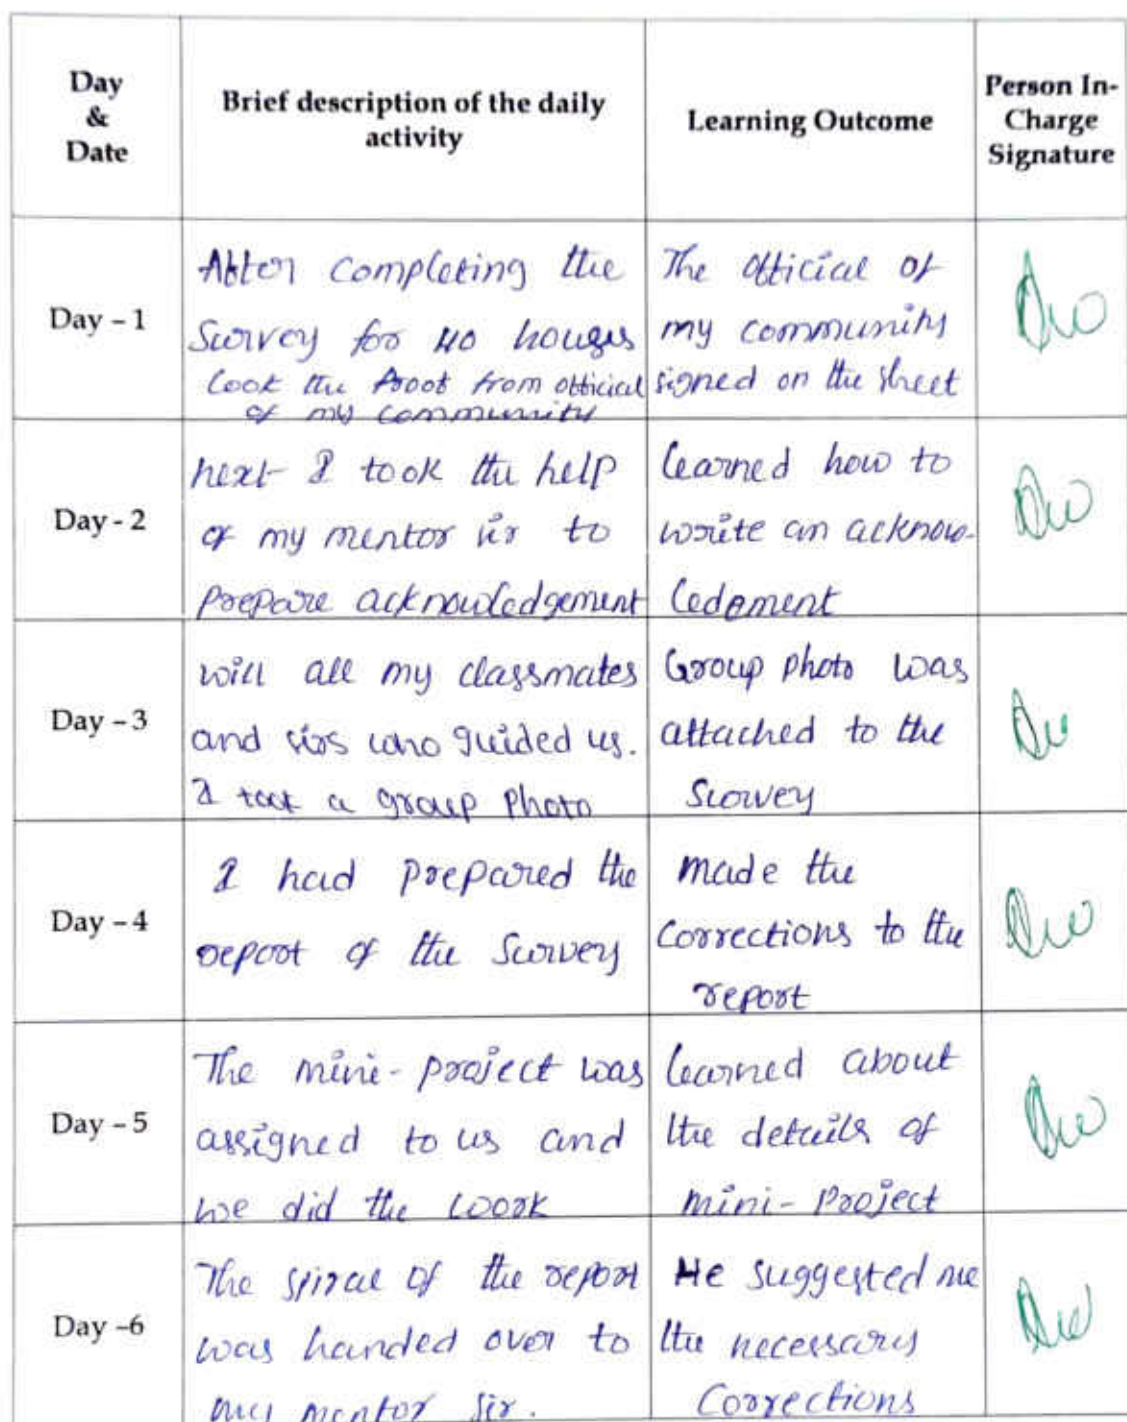 Day
&
Date
Brief description of the daily
activity
Learning Outcome
Person In-
Charge
Signature
Day – 1
After completing the
Survey for 40 houses
took the proof from official
of my community
The official of
my community
signed on the sheet
Day - 2
next I took the help
of my mentor sir to
prepare acknowledgement
learned how to
write an acknow-
ledgment
Day – 3
will all my classmates
and sirs who guided us.
I took a group photo
Group photo was
attached to the
Survey
Day – 4
I had prepared the
report of the Survey
made the
Corrections to the
report
Day – 5
The mini-project was
assigned to us and
we did the work
learned about
the details of
mini-Project
Day –6
The spiral of the report
was handed over to
my mentor sir.
He suggested me
the necessary
Corrections